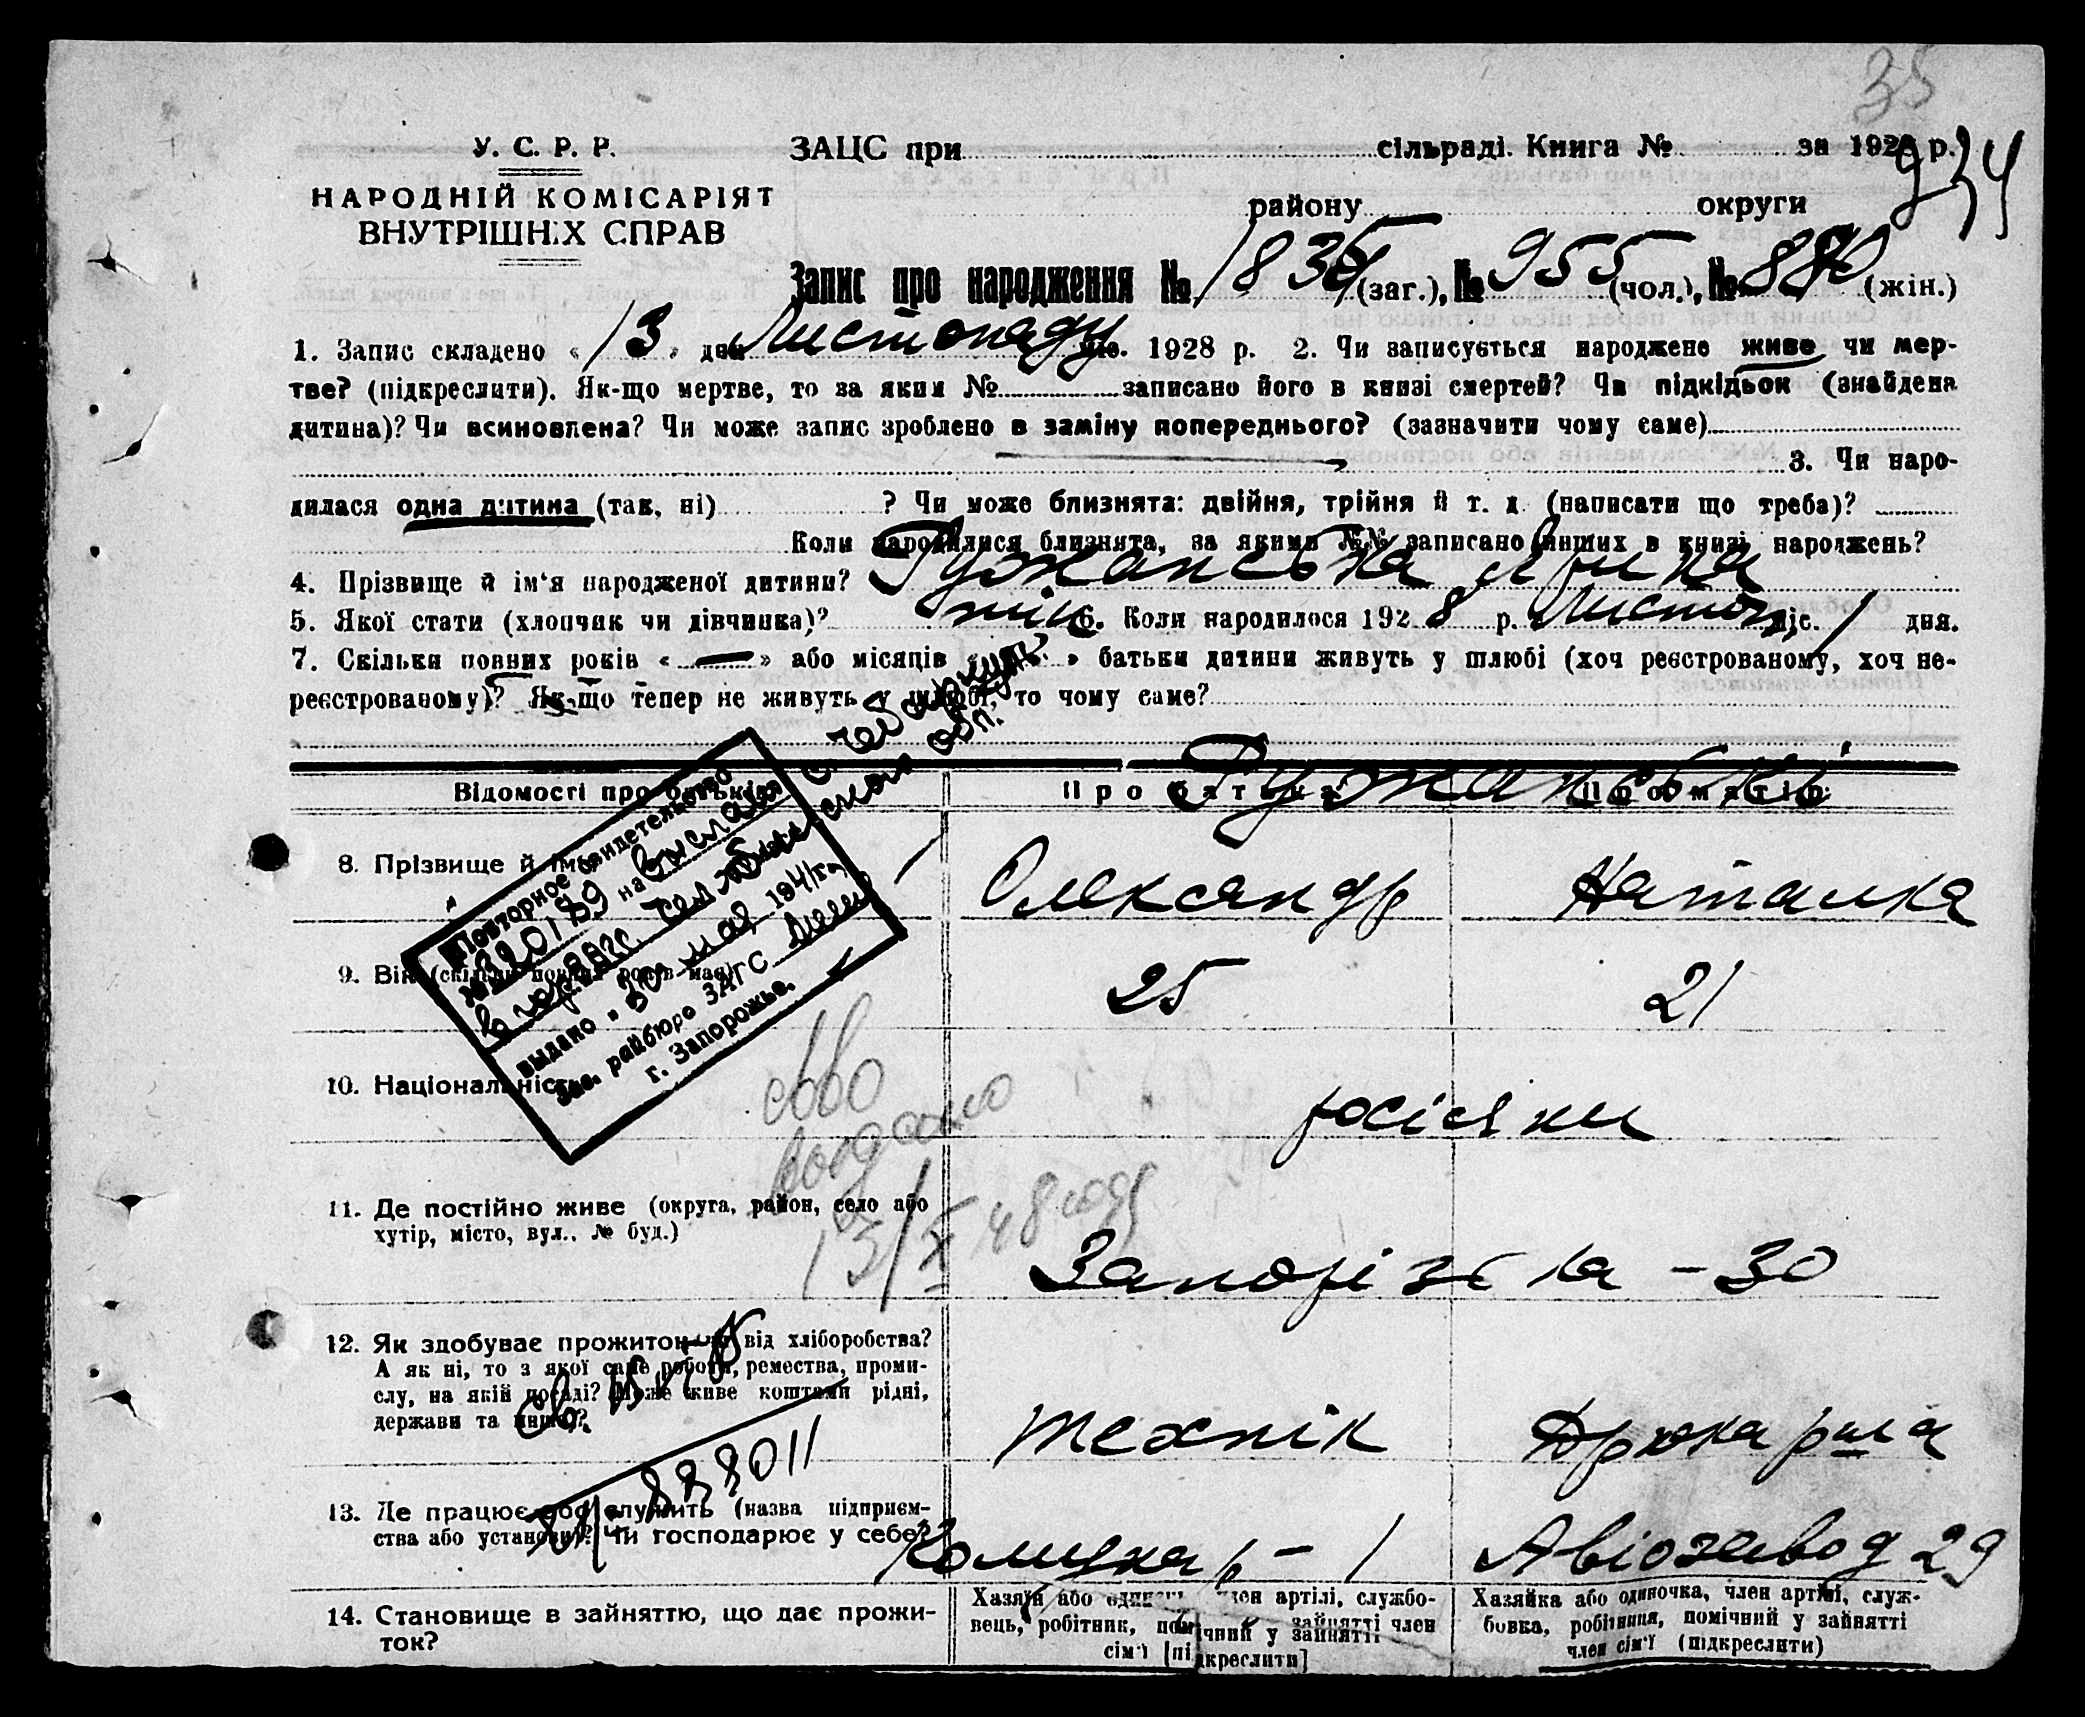 35
У. С. Р. Р.
НАРОДНІЙ КОМІСАРІЯТ
ВНУТРІШНІХ СПРАВ
ЗАЦС при сільраді. Книга № за 1928 р.
934
району округи
Запис про народження № 1835 (заг.), № 955 (чол.), № 880 (жін.)
1. Запис складено « 13 » дня Листопаду міс. 1928 р. 2. Чи записується народжене живе чи мер-
тве? (підкреслити). Як-що мертве, то за яким № записано його в книзі смертей? Чи підкідьок (знайдена
дитина)? Чи всиновлена? Чи може запис зроблено в заміну попереднього? (зазначити чому саме)
3. Чи наро-
дилася одна дитина (так, ні) ? Чи може близнята: двійня, трійня й т. д. (написати що треба)?
Коли народилися близнята, за якими №№ записано инших в книзі народжень?
4. Прізвище й ім‘я народженої дитини? Ружанська
5. Якої стати (хлопчик чи дівчинка)? жін 6. Коли народилося 1928 р. Листоп. міс. 1 дня.
7. Скільки повних років « — » або місяців « » батьки дитини живуть у шлюбі (хоч реєстрованому, хоч не-
реєстрованому)? Як-що тепер не живуть у шлюбі, то чому саме?
Ружанські
Відомості про батьків Про батька: Про матір:
8. Прізвище й ім‘я Олександр Наталка
9. Вік (скільки повних років має) 25 21
10. Національність росіяни
11. Де постійно живе (округа, район, село або
хутір, місто, вул., № буд.)
Запорізька - 30
12. Як здобуває прожиток чи від хліборобства?
А як ні, то з якої саме роботи, ремества, проми-
слу, на якій посаді? Може живе коштами рідні,
держави та инше?
технік Друкарша
13. Де працює або служить (назва підприєм-
ства або установи)? Чи господарює у себе?
Комунар - 1 Авіозавод 29
14. Становище в зайняттю, що дає прожи-
ток?
Хазяїн або одинець, член артілі, службо-
вець, робітник, помічний у зайнятті член
сім‘ї [підкреслити]
Хазяйка або одиночка, член артілі, служ-
бовка, робітниця, помічний у зайнятті
член сім‘ї (підкреслити)
Повторное свидетельство
№ 220189 на
выдано « 30 » мая 1941 г.
Зав. райбюро ЗАГС
г. Запорожье.
сво
выдано
13/X 48 году